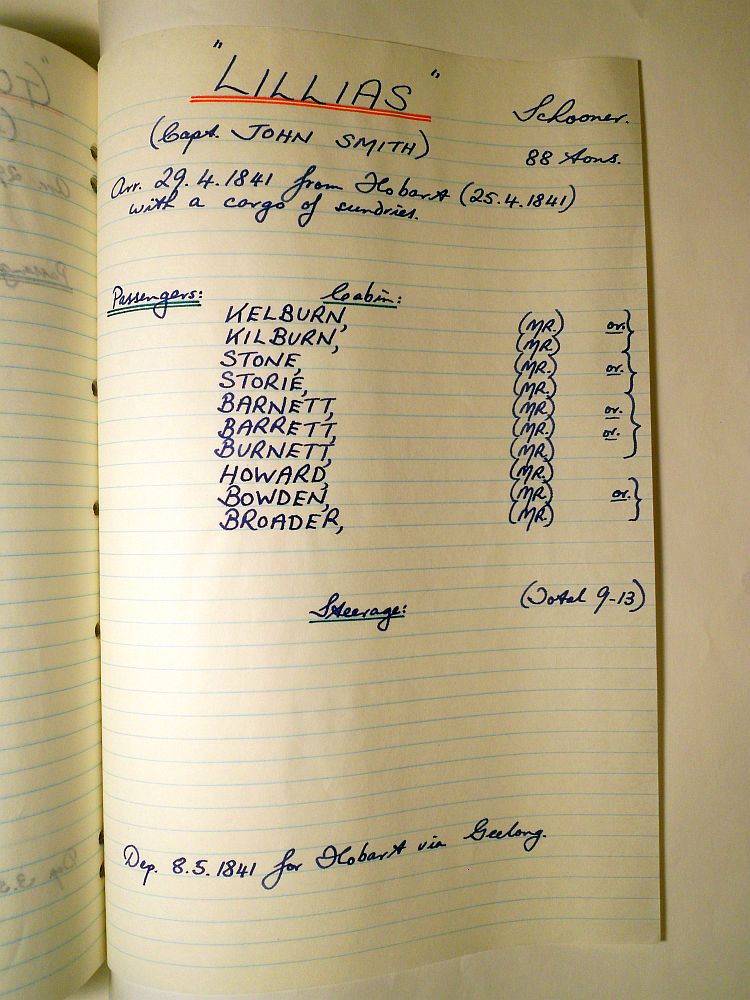 "LILLIAS"
Schooner.
(Capt. JOHN SMITH)
88 tons.
Arr. 29.4.1841 from Hobart (25.4.1841)
with a cargo of sundries.
Passengers: Cabin:
KELBURN, (MR.) or.
KILBURN, (MR.)
STONE, (MR.) or.
STORIE, (MR.)
BARNETT, (MR.) or.
BARRETT, (MR.) or.
BURNETT, (MR.)
HOWARD, (MR.)
BOWDEN, (MR.) or.
BROADER, (MR.)
Steerage: (Total 9-13)
Dep. 8.5.1841 for Hobart via Geelong.